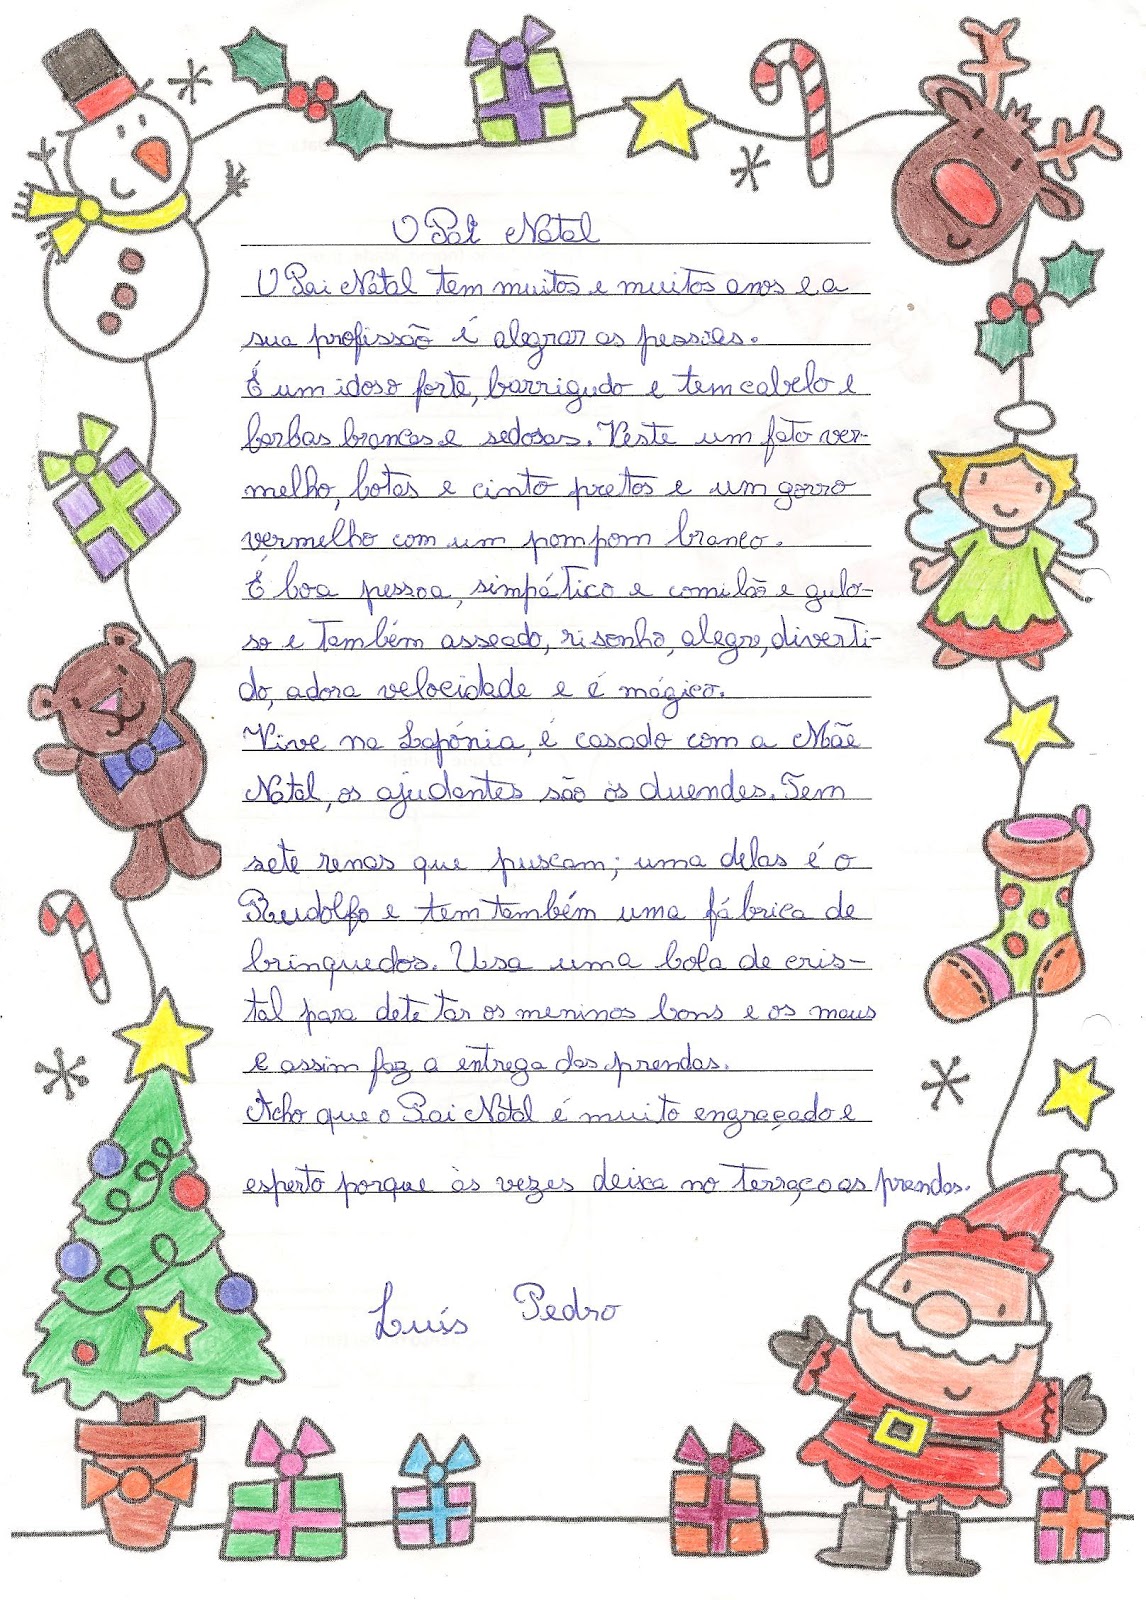 O Pai Natal
O Pai Natal tem muitos e muitos anos e a
sua profissão é alegrar as pessoas.
É um idoso forte, barrigudo e tem cabelo e
barbas brancas e sedosas. Veste um fato ver-
melho, botas e cinto pretos e um gorro
vermelho com um pompom branco.
É boa pessoa, simpático e comilão e gulo-
so e também asseado, risonho, alegre, diverti-
do, adora velocidade e é mágico.
Vive na Lapónia, é casado com a Mãe
Natal, os ajudantes são os duendes. Tem
sete renas que puscam; uma delas é o
Rudolfo e tem também uma fábrica de
brinquedos. Usa uma bola de cris-
tal para detetar os meninos bons e os maus
e assim faz a entrega das prendas.
Acho que o Pai Natal é muito engraçado e
esperto porque às vezes deixa no terraço as prendas.
Luís Pedro